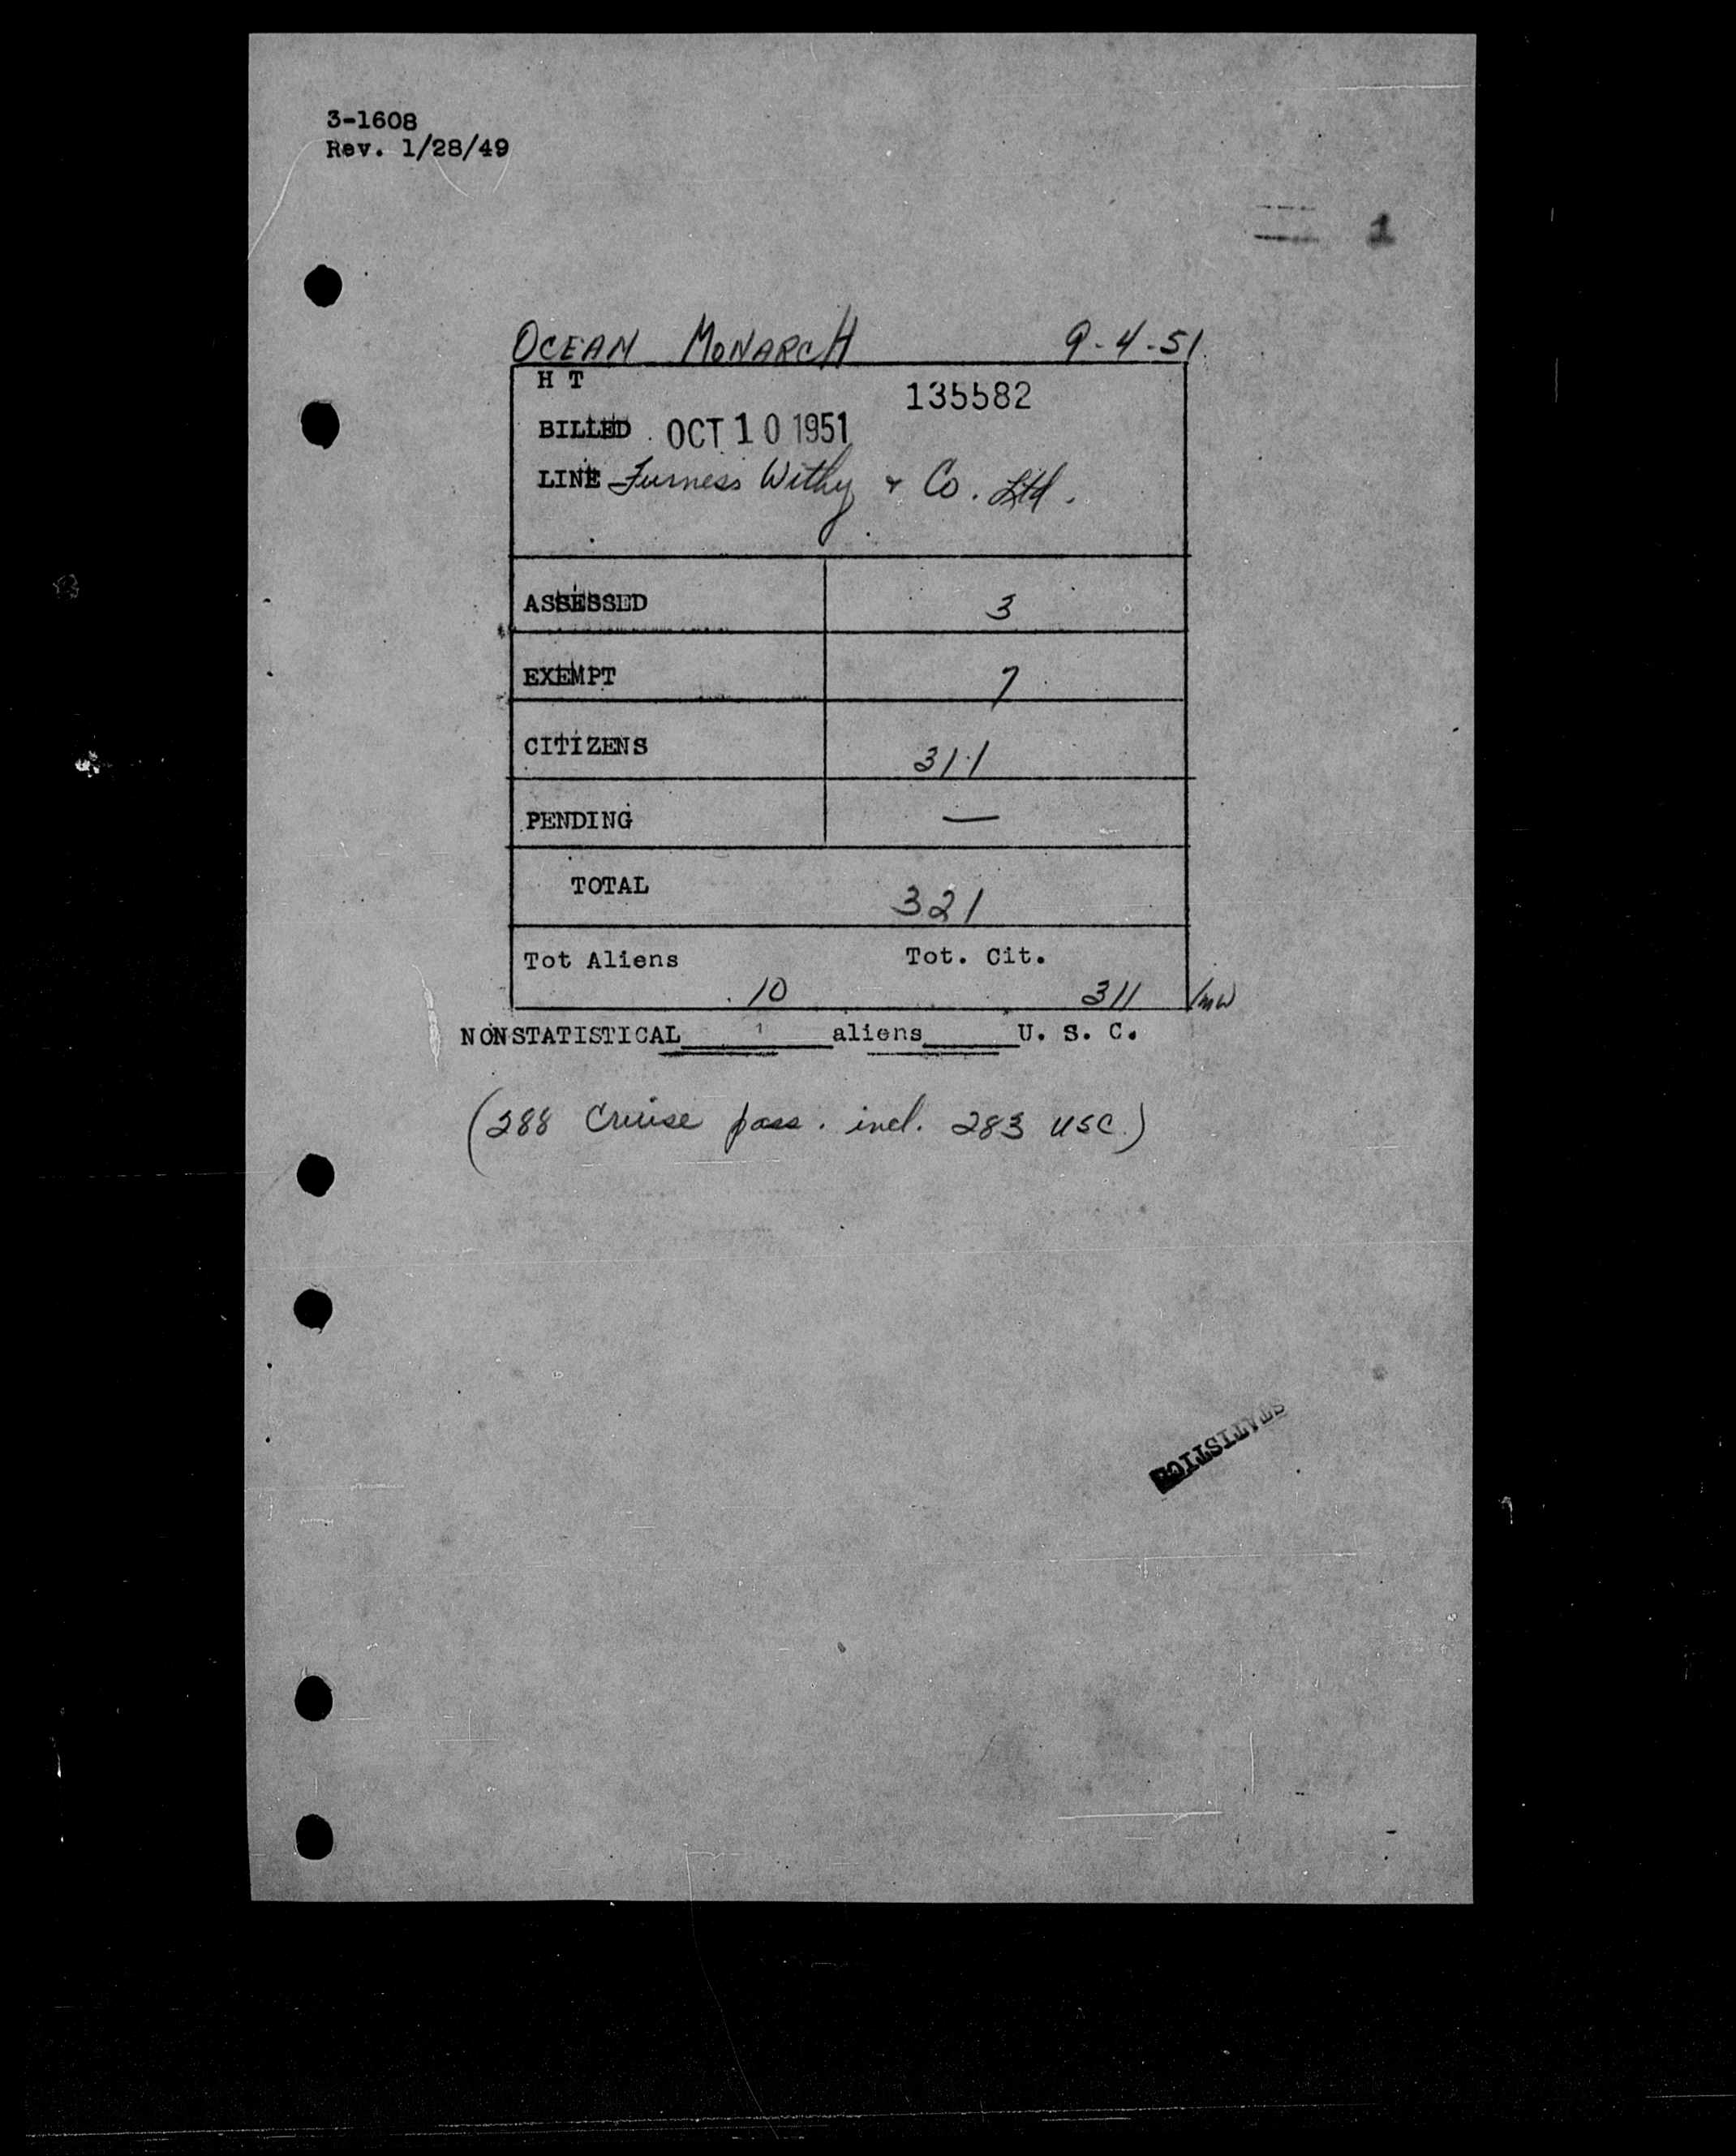 3-1608
Rev. 1/28/49
1
OCEAN MONARCH 9-4-51
H T
135582
BILLED OCT 10 1951
LINE Furness Withy & Co. Ltd.
ASSESSED 3
EXEMPT 7
CITIZENS 311
PENDING —
TOTAL 321
Tot Aliens Tot. Cit.
10 311 /mw
NONSTATISTICAL______aliens______U. S. C.
(288 Cruise pass. incl. 283 USC.)